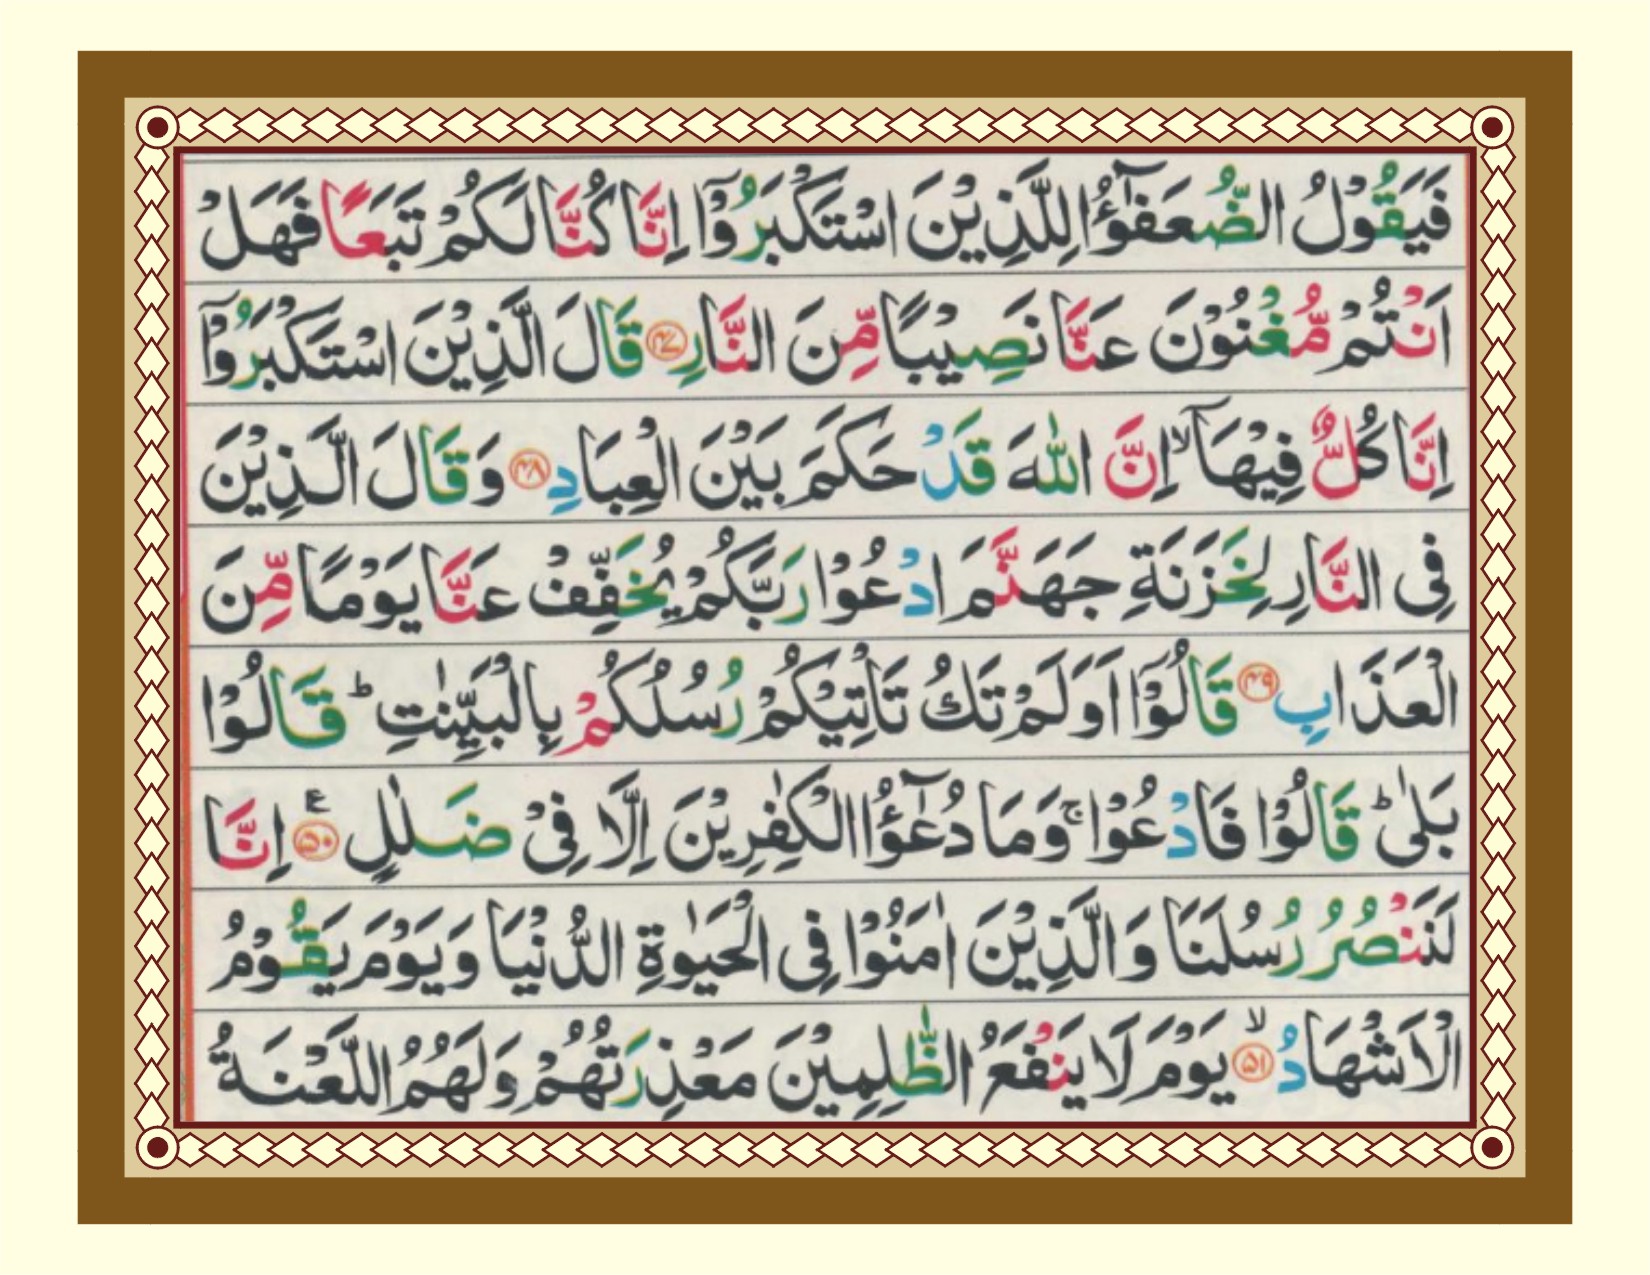 فَيَقُوْلُ الضُّعَفٰٓؤُا لِلَّذِيْنَ اسْتَكْبَرُوْۤا اِنَّا كُنَّا لَكُمْ تَبَعًا فَهَلْ
اَنْتُمْ مُّغْنُوْنَ عَنَّا نَصِيْبًا مِّنَ النَّارِ ﴿۴۷﴾ قَالَ الَّذِيْنَ اسْتَكْبَرُوْۤا
اِنَّا كُلٌّ فِيْهَاۤ ۙ اِنَّ اللّٰهَ قَدْ حَكَمَ بَيْنَ الْعِبَادِ ﴿۴۸﴾ وَقَالَ الَّذِيْنَ
فِى النَّارِ لِخَزَنَةِ جَهَنَّمَ ادْعُوْا رَبَّكُمْ يُخَفِّفْ عَنَّا يَوْمًا مِّنَ
الْعَذَابِ ﴿۴۹﴾ قَالُوْۤا اَوَلَمْ تَكُ تَاْتِيْكُمْ رُسُلُكُمْ بِالْبَيِّنٰتِ ؕ قَالُوْا
بَلٰى ؕ قَالُوْا فَادْعُوْا ۚ وَمَا دُعٰٓؤُا الْكٰفِرِيْنَ اِلَّا فِىْ ضَلٰلٍ ﴿۵۰﴾ ع اِنَّا
لَنَنْصُرُ رُسُلَنَا وَالَّذِيْنَ اٰمَنُوْا فِى الْحَيٰوةِ الدُّنْيَا وَيَوْمَ يَقُوْمُ
الْاَشْهَادُ ۙ ﴿۵۱﴾ يَوْمَ لَا يَنْفَعُ الظّٰلِمِيْنَ مَعْذِرَتُهُمْ وَلَهُمُ اللَّعْنَةُ